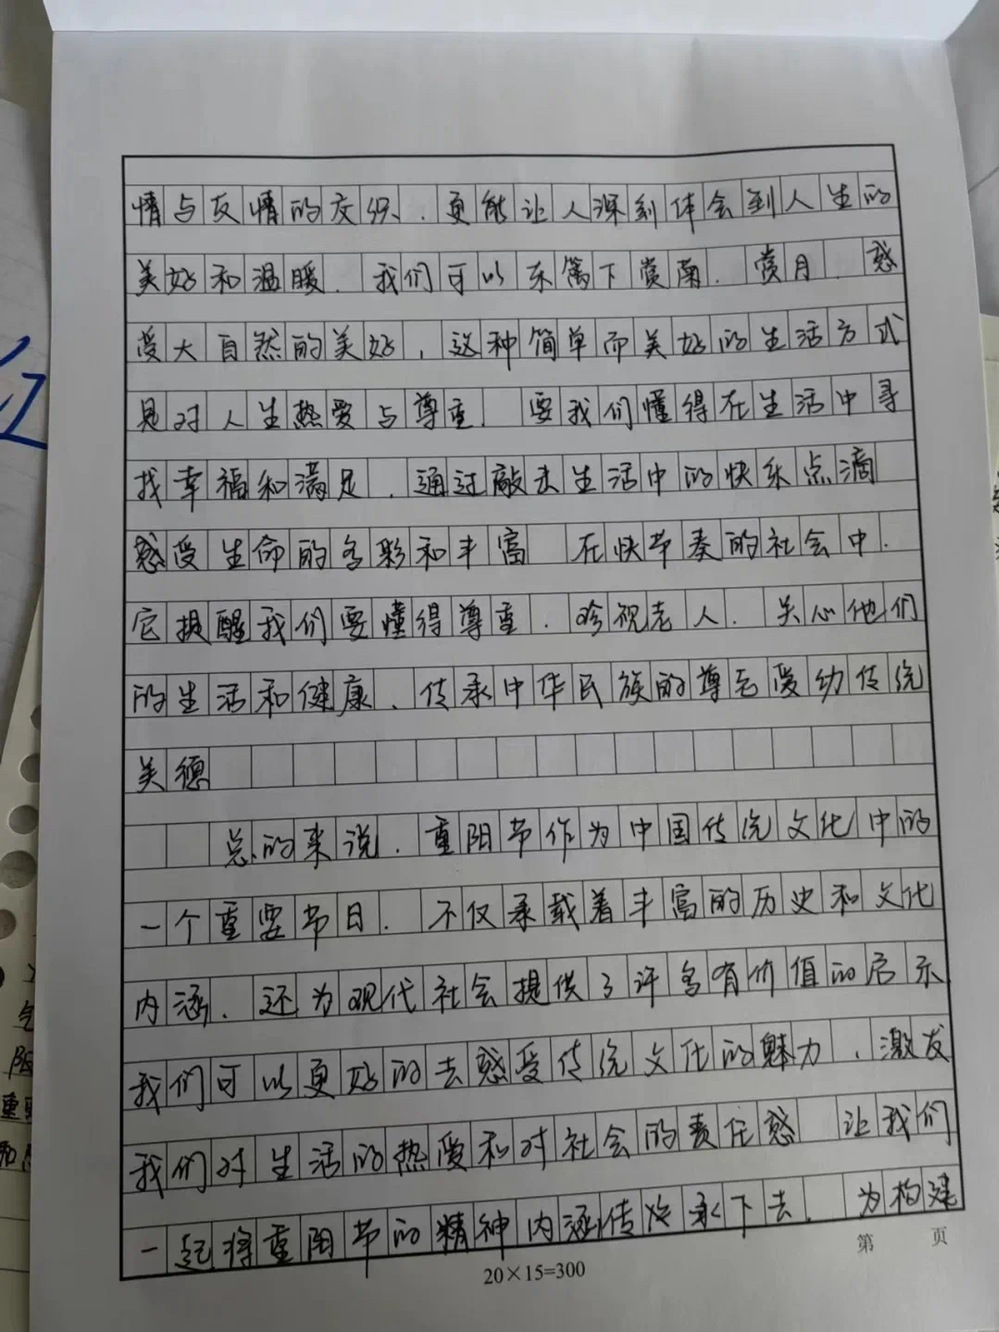 情与友情的交织、更能让人深刻体会到人生的
美好和温暖.我们可以东篱下赏菊.赏月.感
受大自然的美好,这种简单而美好的生活方式
是对人生热爱与尊重.要我们懂得在生活中寻
找幸福和满足,通过敲去生活中的快乐点滴
感受生命的多彩和丰富 在快节奏的社会中.
它提醒我们要懂得尊重.珍视老人.关心他们
的生活和健康、传承中华民族的尊老爱幼传统
美德
总的来说.重阳节作为中国传统文化中的
一个重要节日.不仅承载着丰富的历史和文化
内涵.还为现代社会提供了许多有价值的启示
我们可以更好的去感受传统文化的魅力,激发
我们对生活的热爱和对社会的责任感 让我们
一起将重阳节的精神内涵传 承下去.为构建
第 页
20×15=300
重